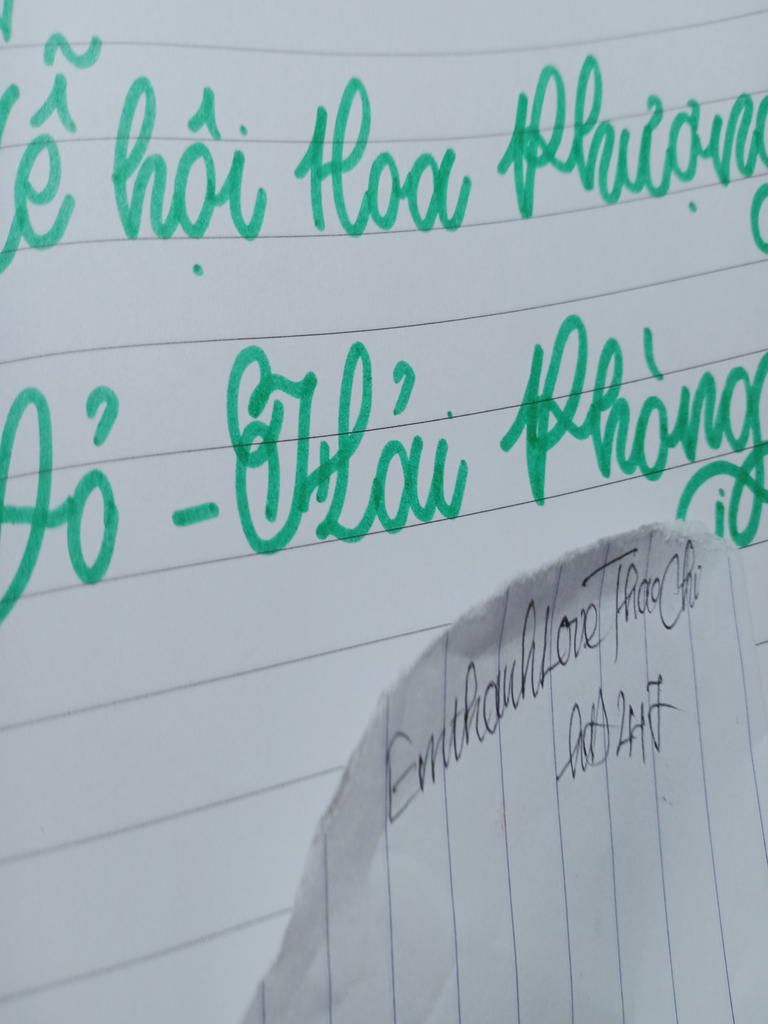 Lễ hội Hoa Phượng
Đỏ - Hải Phòng
EmthanhLove ThaoChi